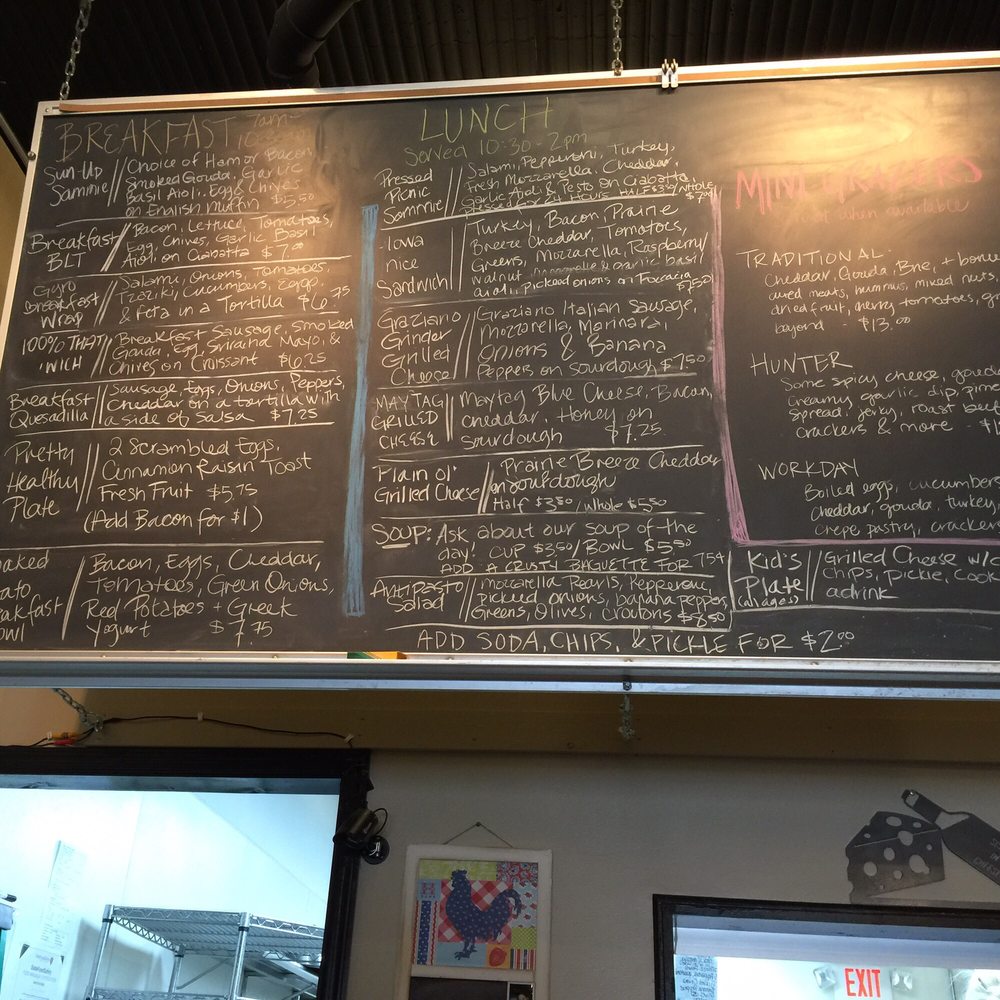 BREAKFAST 7am-
Sun-Up
Sammie
Choice of Ham or Bacon,
Smoked Gouda, Garlic
Basil Aioli, Egg & Chives
on English Muffin $5.50
Breakfast
BLT
Bacon, Lettuce, Tomatoes,
Egg, Chives, Garlic Basil
Aioli on Ciabatta $7.00
Gyro
Breakfast
Wrap
Salami, Onions, Tomatoes,
Tzaziki, Cucumbers, Eggs,
& Feta in a Tortilla $6.75
100% THAT
'WICH
Breakfast Sausage, Smoked
Gouda, Egg, Sriracha Mayo, &
Chives on Croissant $6.25
Breakfast
Quesadilla
Sausage Eggs, Onions, Peppers,
Cheddar on a tortilla with
a side of Salsa $7.25
Pretty
Healthy
Plate
2 Scrambled Eggs,
Cinnamon Raisin Toast
Fresh Fruit $5.75
(Add Bacon for $1)
Bacon, Eggs, Cheddar,
Tomatoes, Green Onions,
Red Potatoes + Greek
Yogurt $7.75
LUNCH
Served 10:30-2pm
Pressed
Picnic
Sammie
Salami, Pepperoni, Turkey,
Fresh Mozzarella, Cheddar,
Garlic Aioli & Pesto on Ciabatta,
Pressed for 24 Hours HALF $3.50/WHOLE
$7.00
Iowa
nice
Sandwich
Turkey, Bacon, Prairie
Breeze Cheddar, Tomatoes,
Greens, Mozzarella, Raspberry/
walnut & garlic basil
aioli, Picked onions on Foccacia
$7.50
Graziano
Grinder
Grilled
Cheese
Graziano Italian Sausage,
Mozzarella, Marinara,
Onions & Banana
Pepper on sourdough $7.50
MAYTAG
GRILLED
CHEESE
Maytag Blue Cheese, Bacon,
cheddar, Honey on
sourdough $7.25
Plain Ol'
Grilled Cheese
Prairie Breeze Cheddar
on Sourdough
Half $3.50/Whole $5.50
SOUP: Ask about our soup of the
day! CUP $3.50/BOWL $5.50
ADD A CRUSTY BAGUETTE FOR 75¢
Antipasto
Salad
Mozzarella Pearls, Pepperoni,
picked onions, banana peppers,
Greens, Olives, croutons $8.50
ADD SODA, CHIPS, & PICKLE FOR $2.00
MINI GRAZERS
when available
TRADITIONAL -
Cheddar, Gouda, Brie, + bonus
cured meats, hummus, mixed nuts,
dried fruit, cherry tomatoes,
beyond - $13.00
HUNTER
Some spicy cheese, gouda
creamy garlic dip,
spread, jerky, roast beef
crackers & more -
WORKDAY
Boiled eggs, cucumbers
cheddar, gouda, turkey,
crepe, pastry, crackers
Kid's
Plate
(all ages)
Grilled Cheese w/
Chips, Pickle,
a drink
EXIT